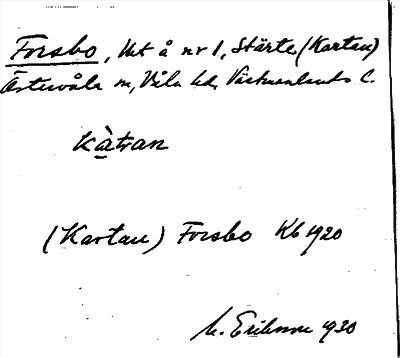 Forsbo, Utt å nr 1, Stärte (Kartau)
Östervåla sn, Våla hd, Västmanlands l.
kàtvan
(Kartau) Forsbo Kb 1920
M. Eriksson 1930